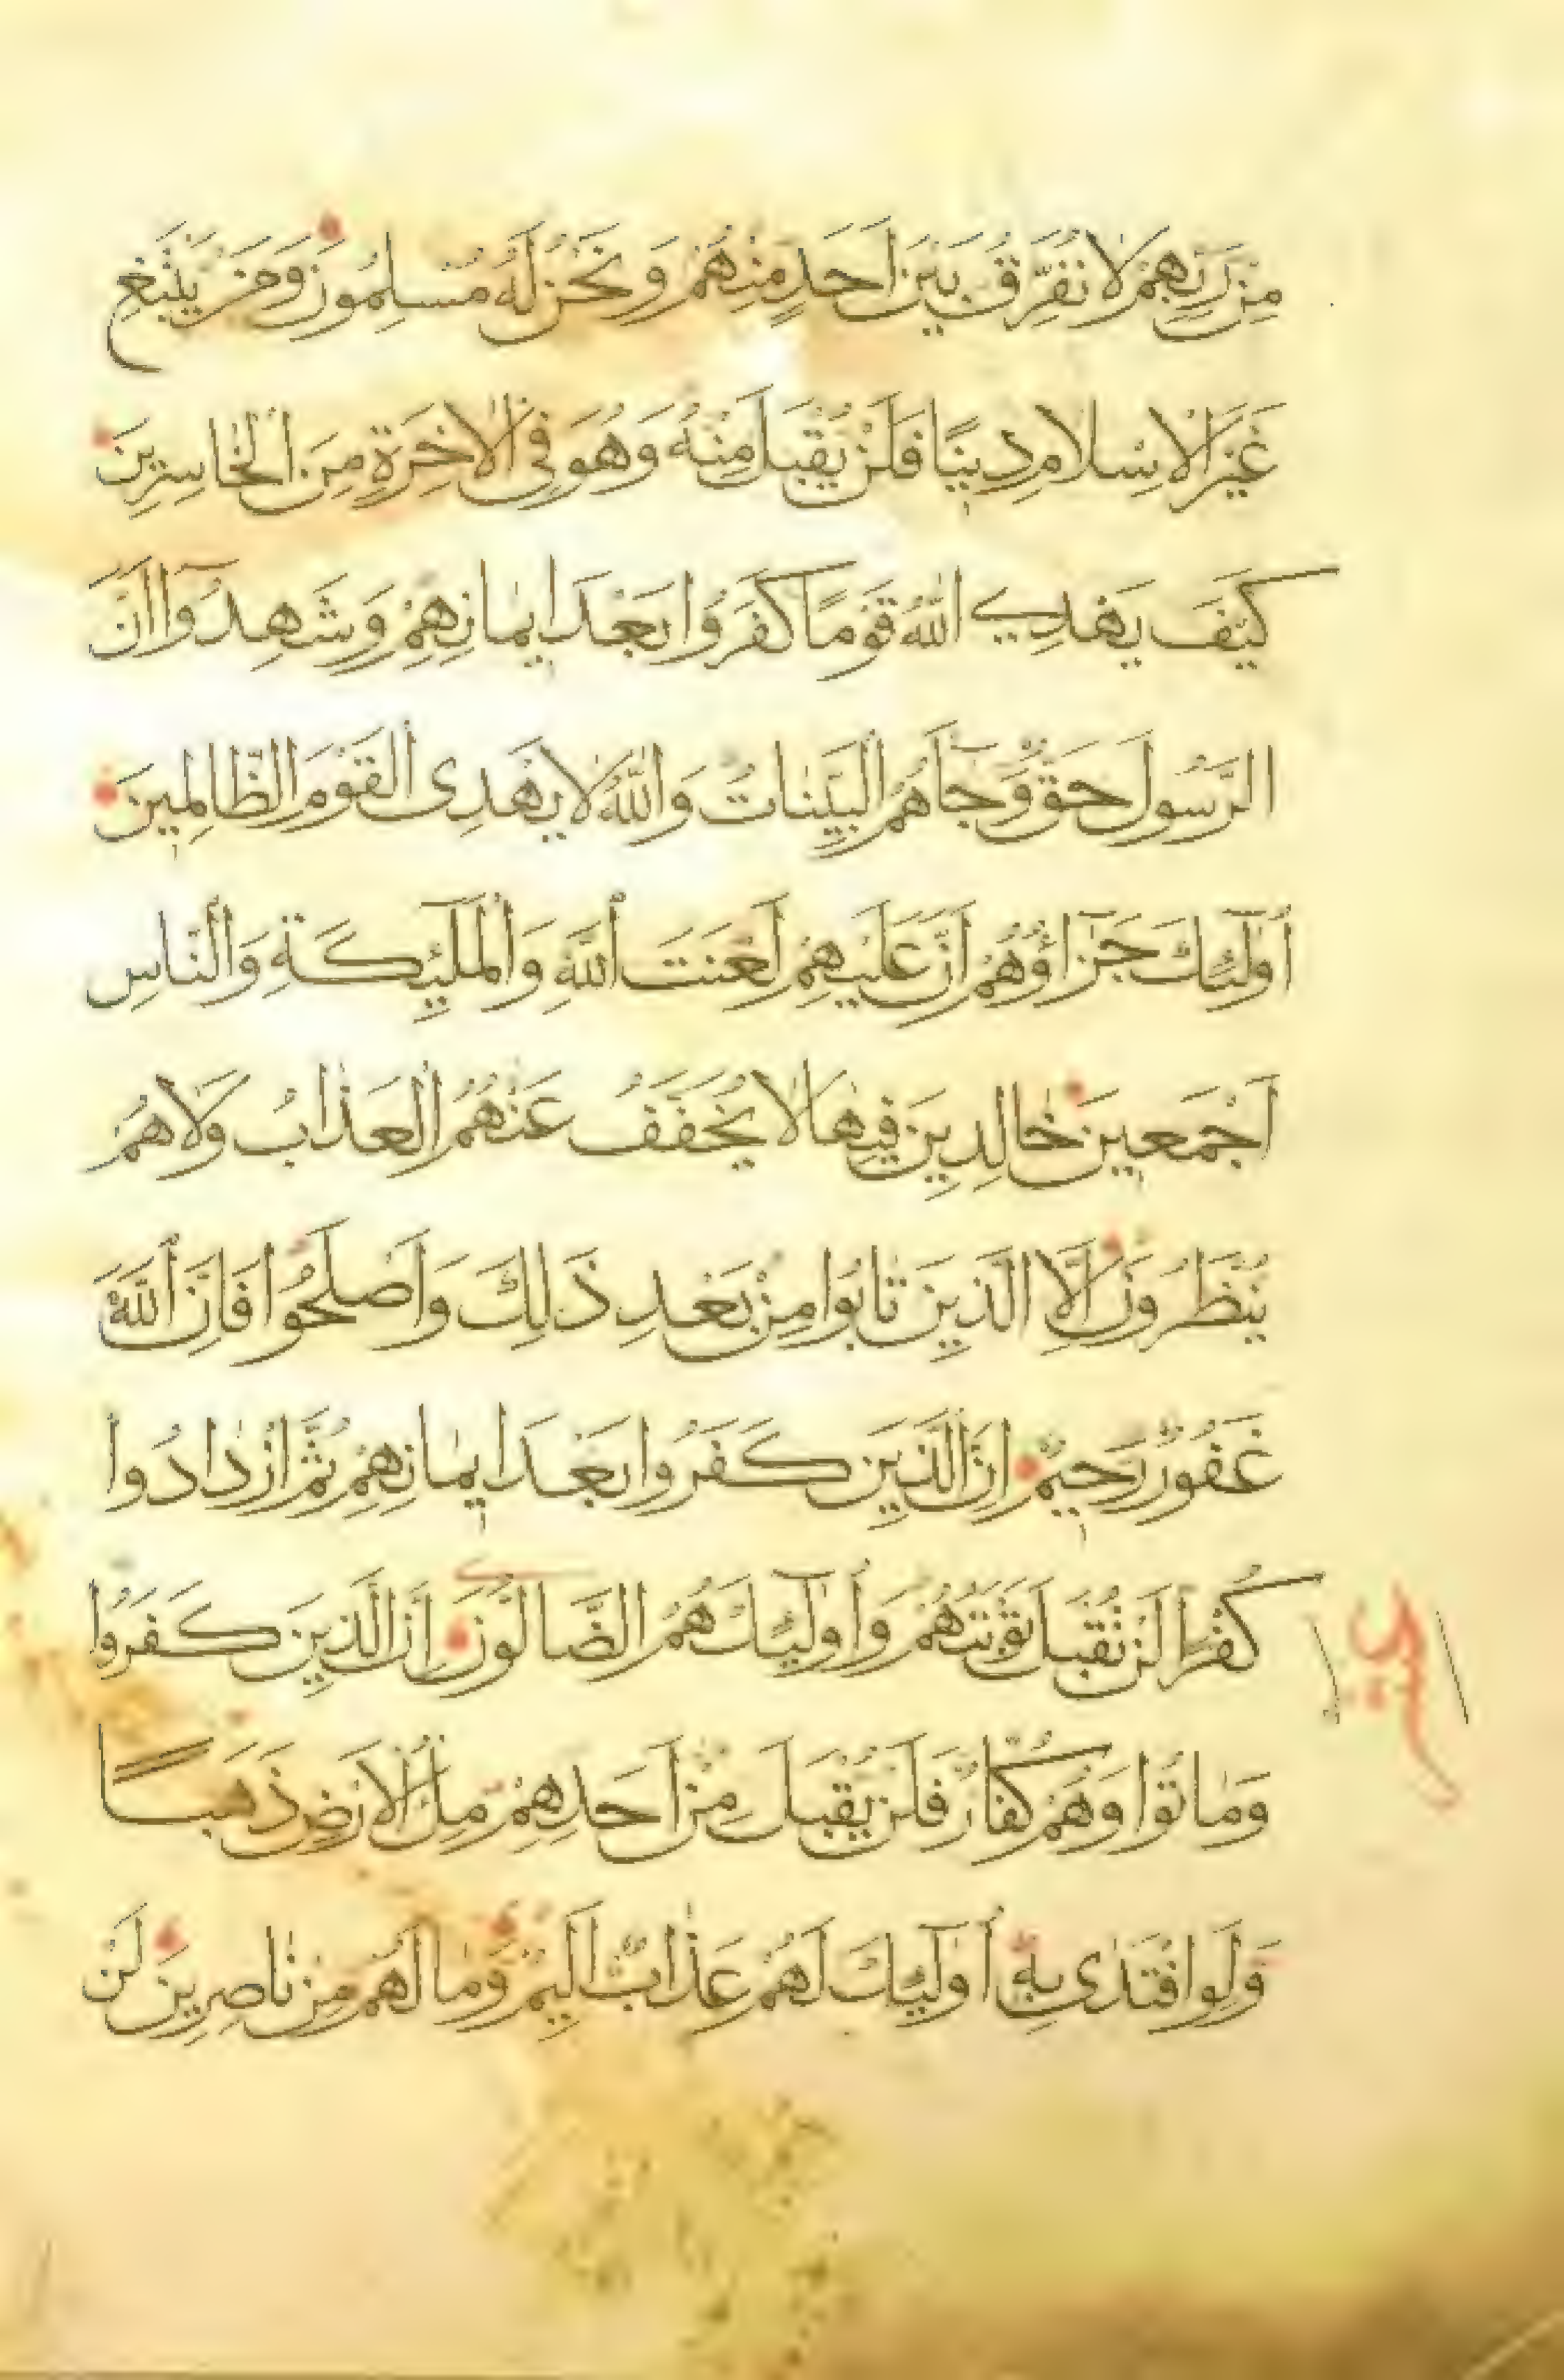 مِنْ رَبِّهِمْ لَا نُفَرِّقُ بَيْنَ اَحَدٍ مِنْهُمْ وَنَحْنُ لَهُ مُسْلِمُونَ وَمَنْ يَبْتَغِ
غَيْرَ الْاِسْلَامِ دِينًا فَلَنْ يُقْبَلَ مِنْهُ وَهُوَ فِى الْاٰخِرَةِ مِنَ الْخَاسِرِينَ
كَيْفَ يَهْدِي اللّٰهُ قَوْمًا كَفَرُوا بَعْدَ ايمٰانِهِمْ وَشَهِدُوآ اَنَّ
الرَّسُولَ حَقٌّ وَجٰآءَهُمُ الْبَيِّنٰاتُ وَاللّٰهُ لَا يَهْدِى الْقَوْمَ الظَّالِمِينَ
اُولٰٓئِكَ جَزَآؤُهُمْ اَنَّ عَلَيْهِمْ لَعْنَتَ اللّٰهِ وَالْمَلٰٓئِكَةِ وَالنَّاسِ
اَجْمَعِينَ خَالِدِينَ فِيهٰا لَا يُخَفَّفُ عَنْهُمُ الْعَذَابُ وَلَا هُمْ
يُنْظَرُونَ اِلَّا الَّذِينَ تٰابُوا مِنْ بَعْدِ ذٰلِكَ وَاَصْلَحُوا فَاِنَّ اللّٰهَ
غَفُورٌ رَحِيمٌ اِنَّ الَّذِينَ كَفَرُوا بَعْدَ ايمٰانِهِمْ ثُمَّ ازْدٰادُوا
كُفْرًا لَنْ تُقْبَلَ تَوْبَتُهُمْ وَاُولٰٓئِكَ هُمُ الضَّآلُّونَ اِنَّ الَّذِينَ كَفَرُوا
وَمٰاتُوا وَهُمْ كُفَّارٌ فَلَنْ يُقْبَلَ مِنْ اَحَدِهِمْ مِلْءُ الْاَرْضِ ذَهَبًا
وَلَوِ افْتَدٰى بِهِ اُولٰٓئِكَ لَهُمْ عَذٰابٌ اَلِيمٌ وَمٰا لَهُمْ مِنْ نٰاصِرِينَ لَنْ